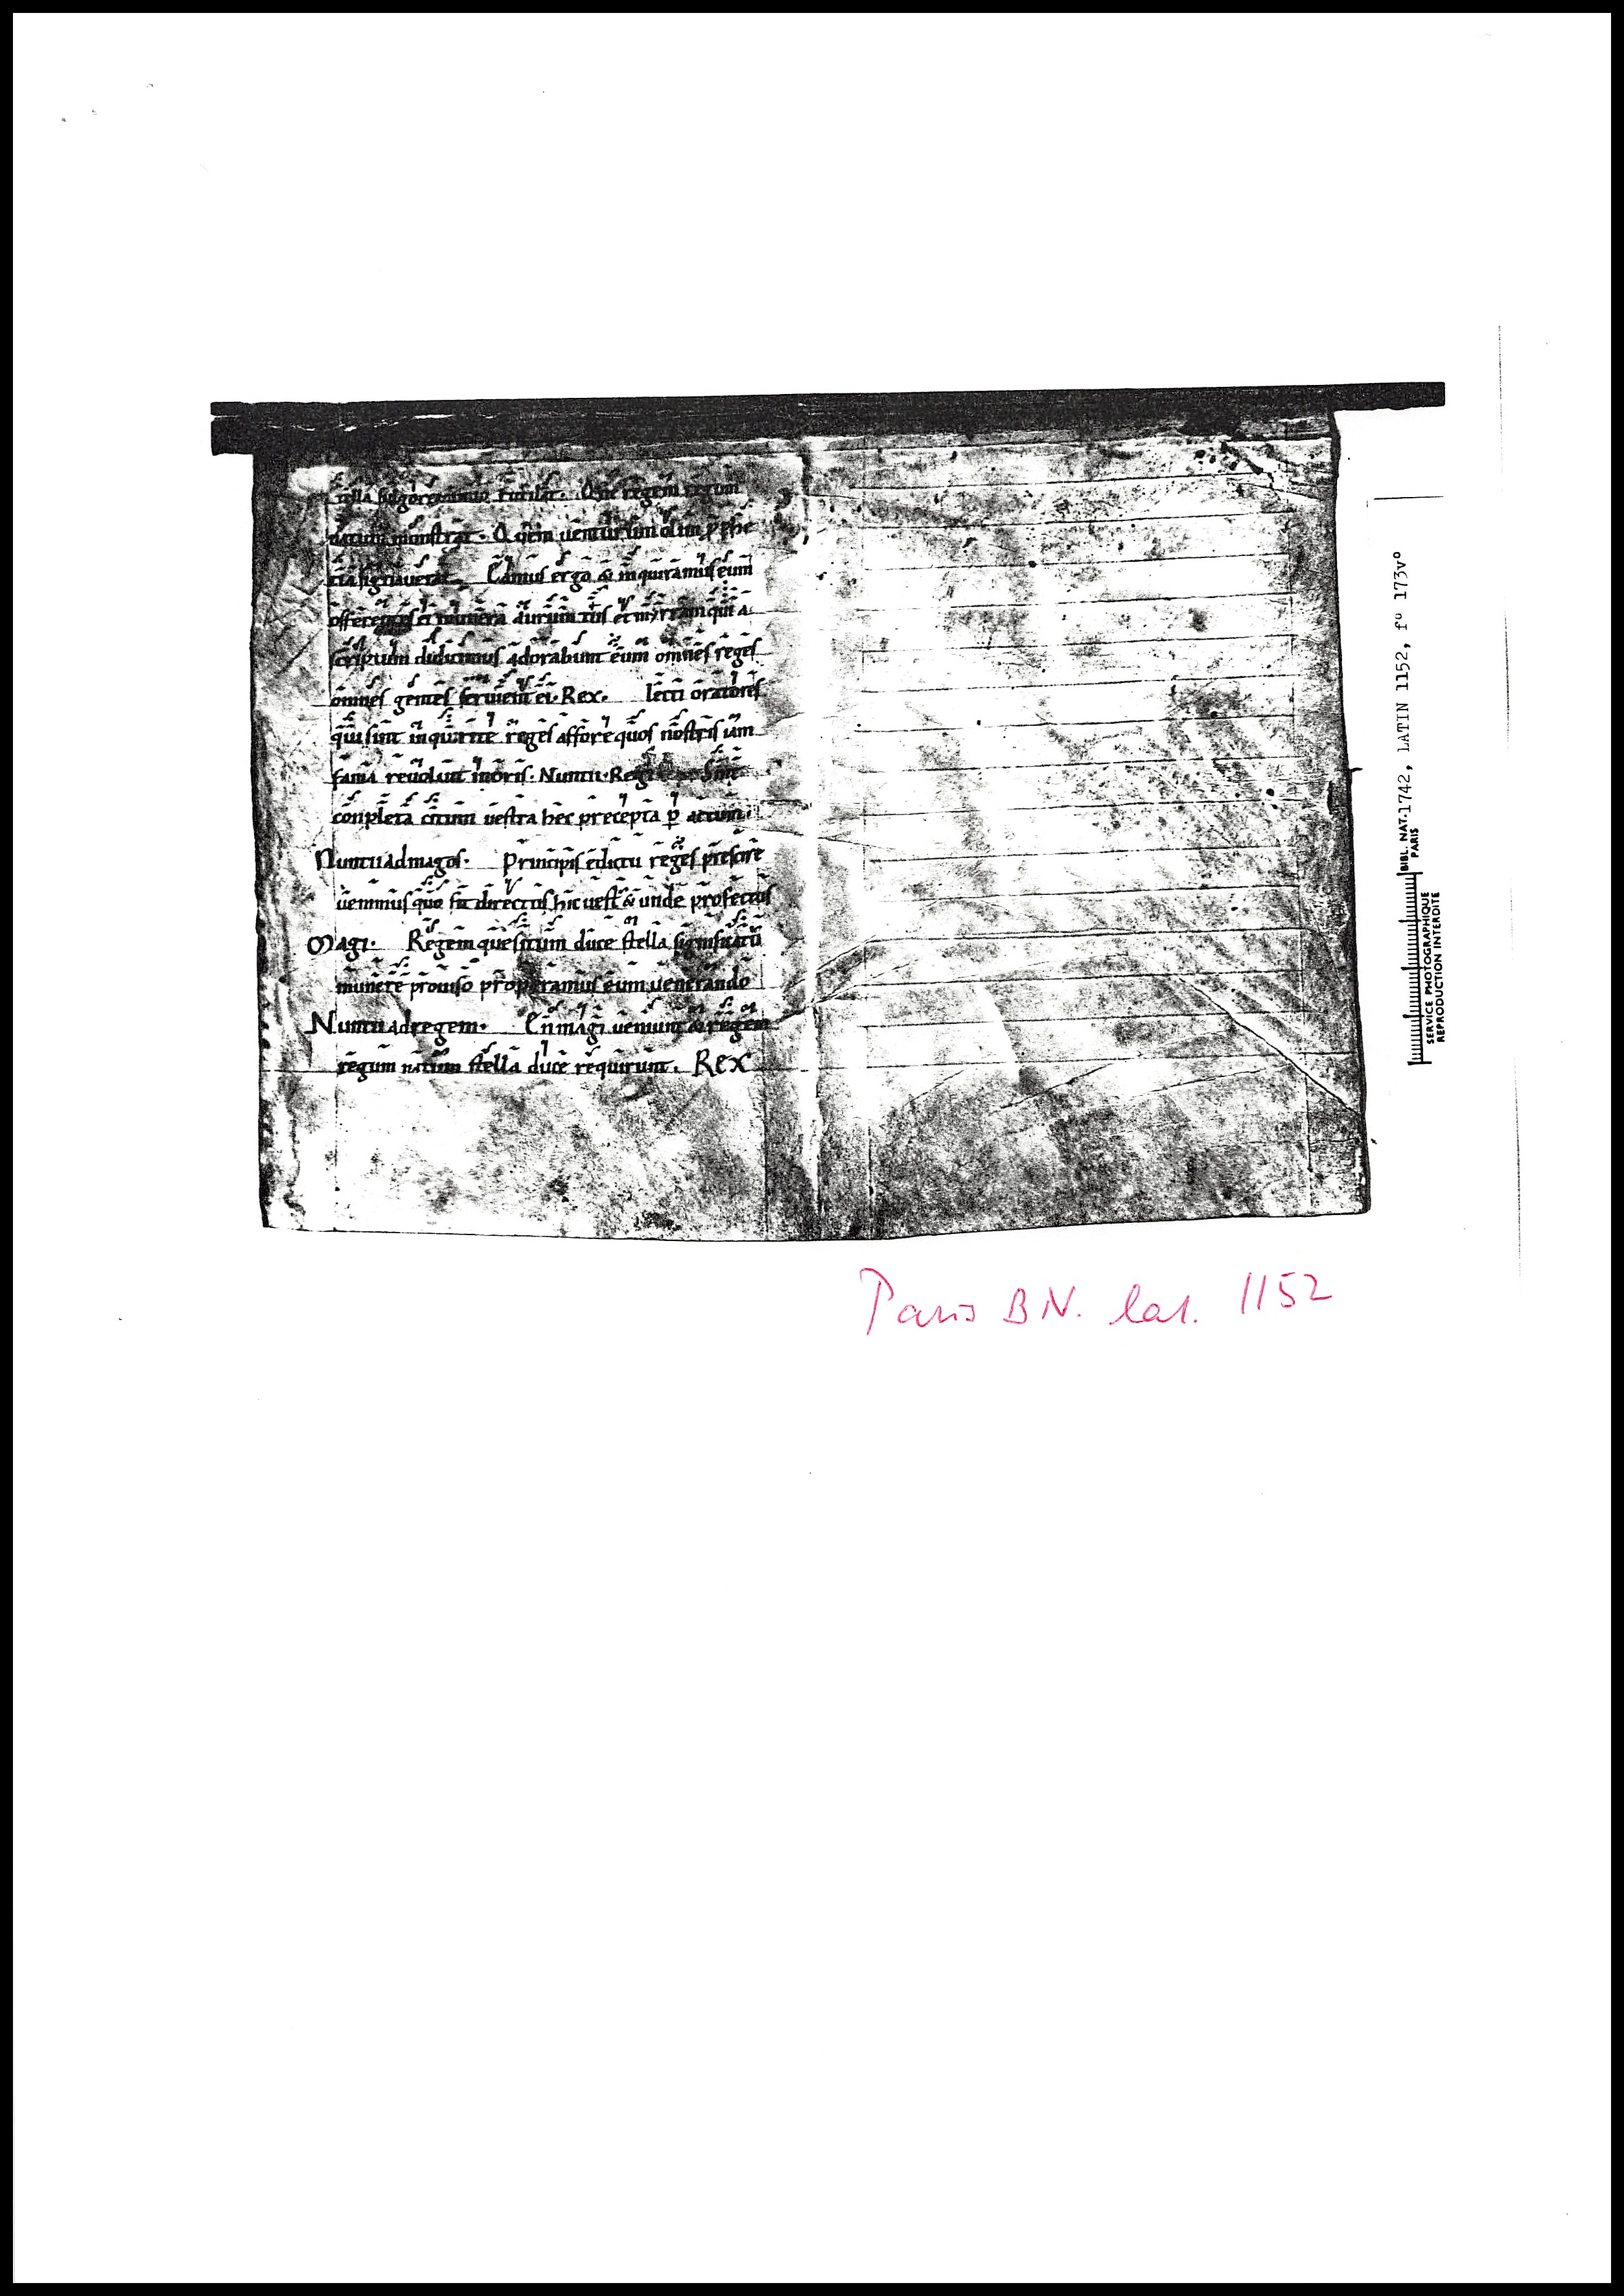 tella fulgore nimio rutilat. Que regem regum
natum monstrat. Quem uenturum olim ꝓphe
tia signauerat. Eamus ergo & inquiramus eum
offerentes ei munera aurum tus et mirram quia
scriptum didicimus adorabunt eum omnes reges
omnes gentes seruient ei. Rex. lecti oratores
qui sint inquirite reges affore quos nostris iam
fama reuolant in oris. Nuntii. Regi Sint
conpleta citum uestra hec precepta ꝑ actum.
Nuntii ad magos. Principis edictu reges prescire
uenimus quo sit directus hic uest̄ & unde profectus
Magi. Regem quesitum duce stella significatū
munere prouiso properamus eum uenerando
Nuntii ad regem. En magi ueniunt & regem
regum natum stella duce requirunt. Rex
BIBL. NAT. 1742, LATIN 1152, fº 173vº
PARIS
SERVICE PHOTOGRAPHIQUE
REPRODUCTION INTERDITE
Paris BN. lat. 1152